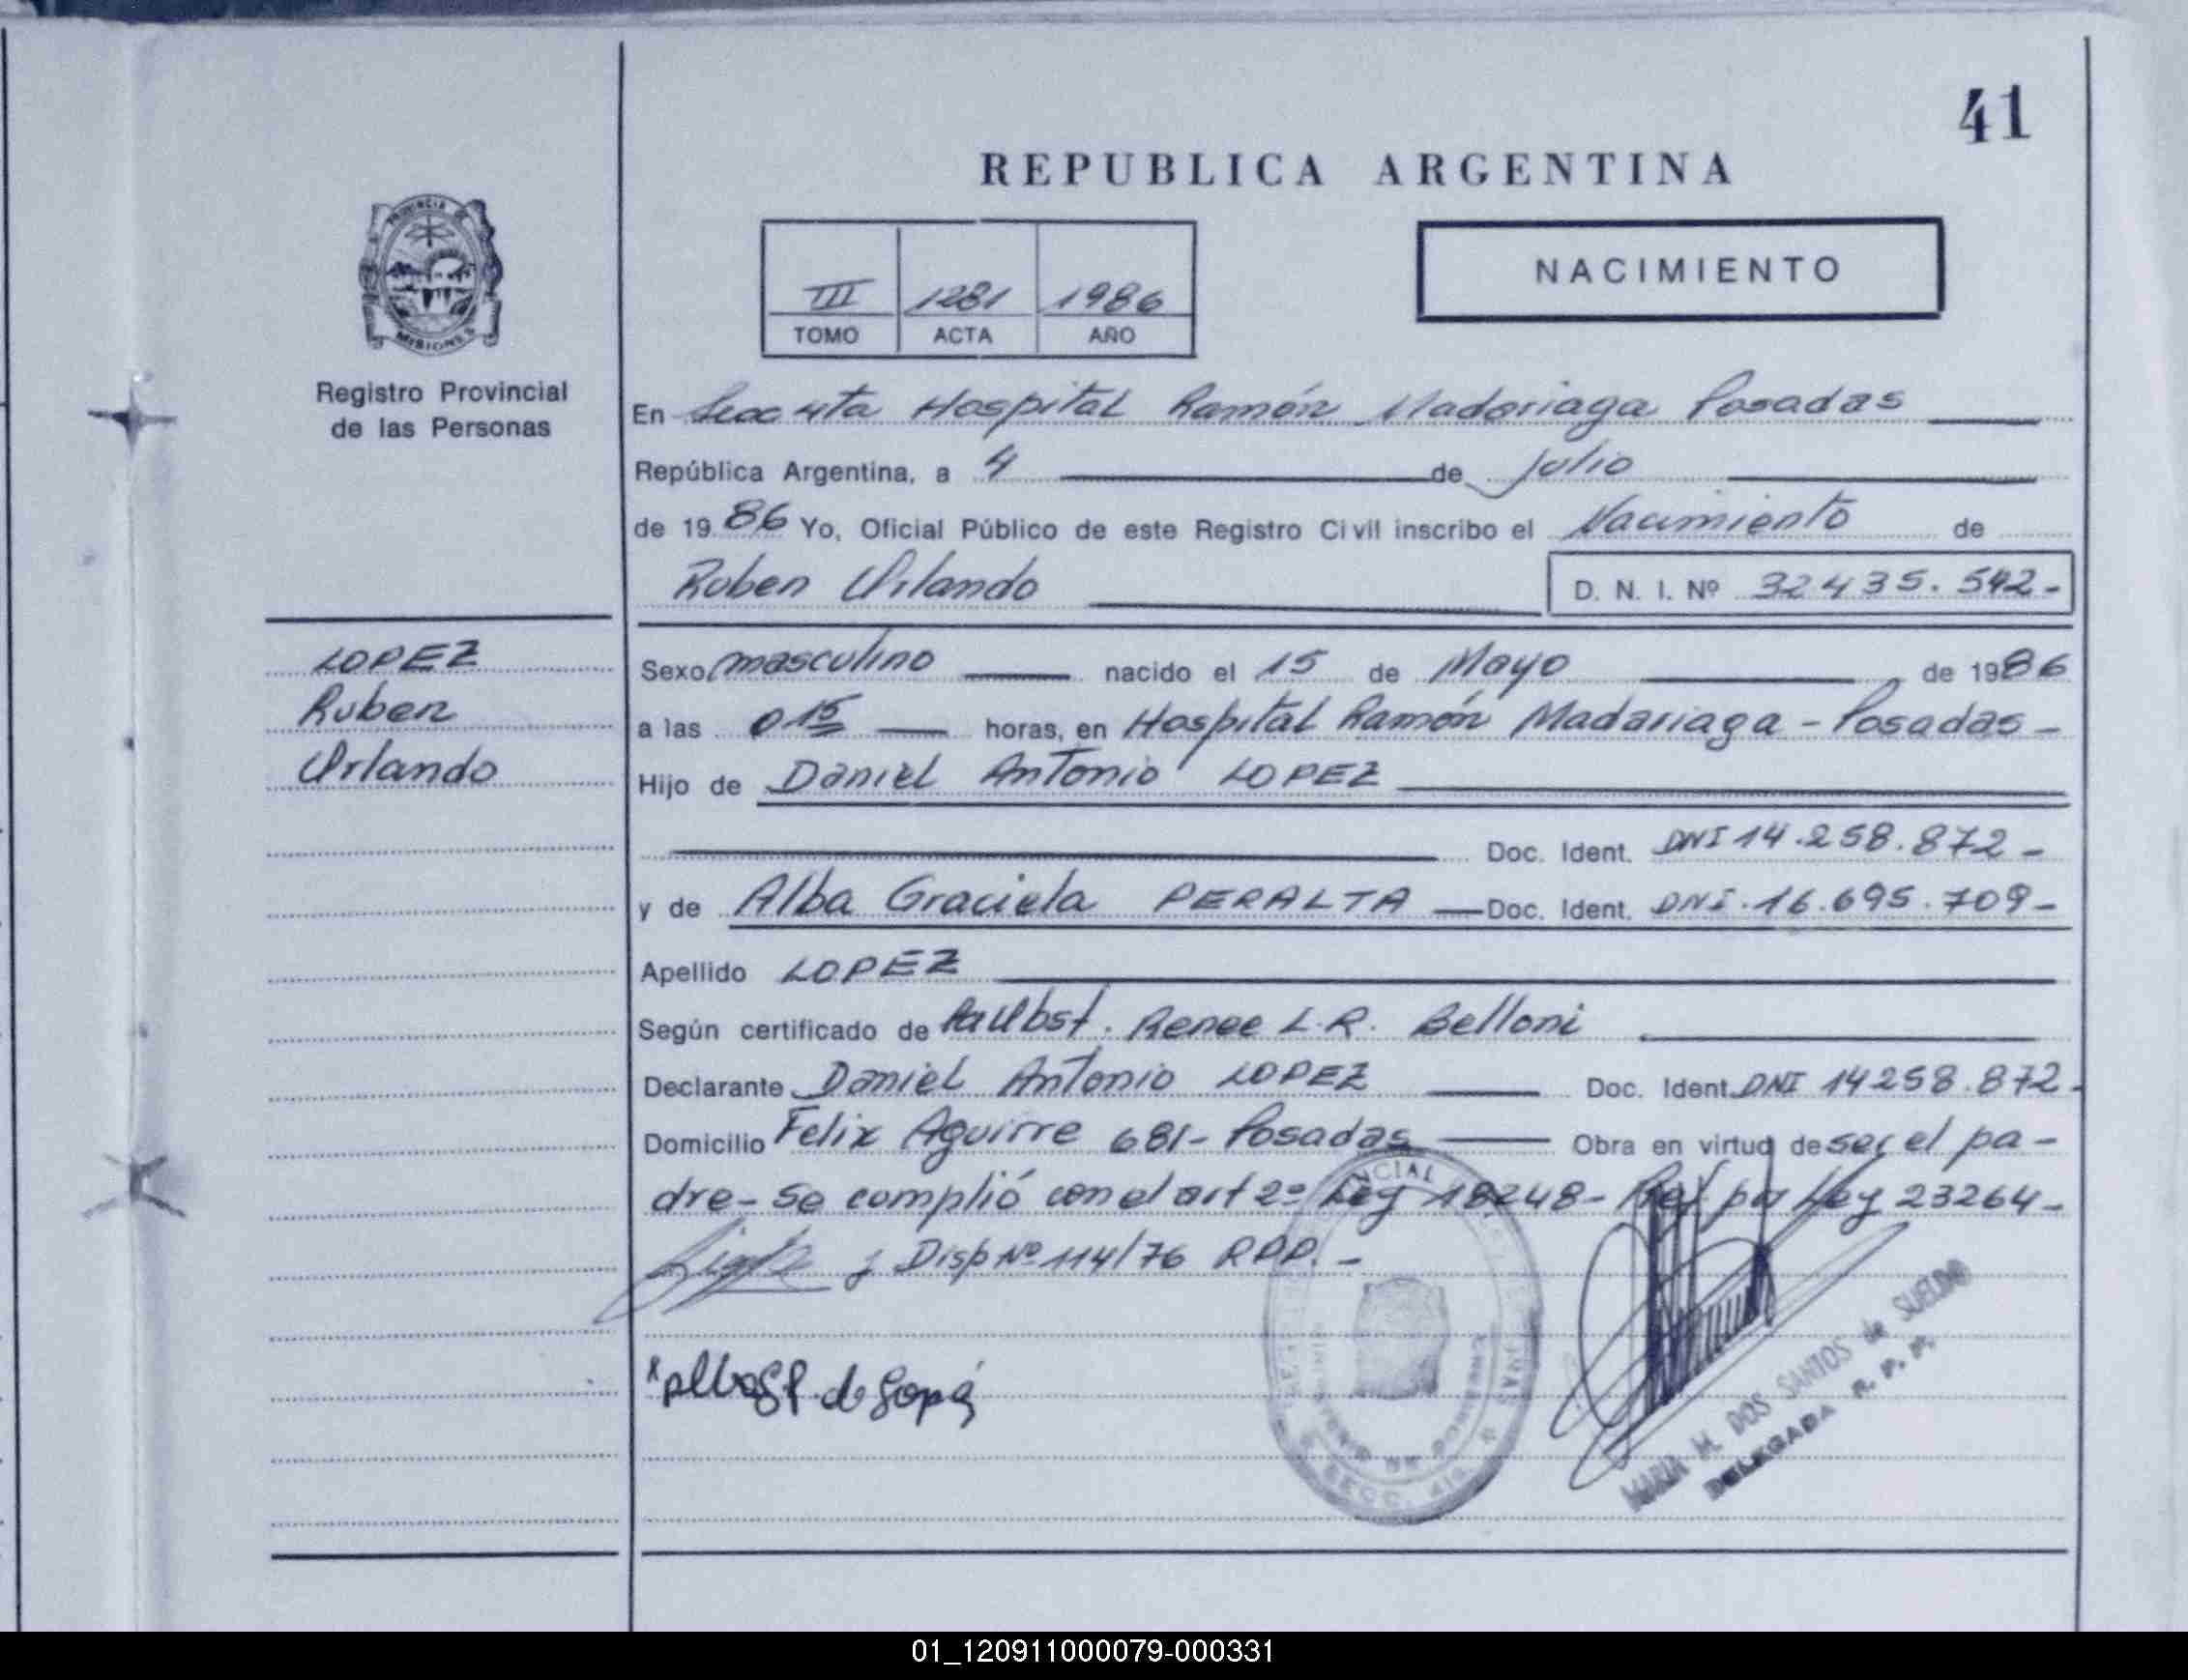 41
REPUBLICA ARGENTINA
PROVINCIA DE
MISIONES
Registro Provincial
de las Personas
III 1281 1986
TOMO ACTA AÑO
NACIMIENTO
En Secc 4ta Hospital Ramón Madariaga Posadas
República Argentina, a 4 de Julio
de 1986 Yo, Oficial Público de este Registro Civil inscribo el Nacimiento de
Ruben Orlando D. N. I. Nº 32435.542-
LOPEZ
Ruben
Orlando
Sexo masculino nacido el 15 de Mayo de 1986
a las 0 15 horas, en Hospital Ramón Madariaga - Posadas -
Hijo de Daniel Antonio LOPEZ
Doc. Ident. DNI 14.258.872-
y de Alba Graciela PERALTA Doc. Ident. DNI.16.695.709-
Apellido LOPEZ
Según certificado de Renee L.R. Belloni
Declarante Daniel Antonio LOPEZ Doc. Ident. DNI 14258.872-
Domicilio Felix Aguirre 681- Posadas Obra en virtud de ser el pa-
dre- Se complió con el art 2º Ley 18248- por Ley 23264-
y Disp Nº 114/76 RPP.-
MARIA M. DOS SANTOS de SUELDO
DELEGADA R. P. P.
SECC. 4ta
01_120911000079-000331